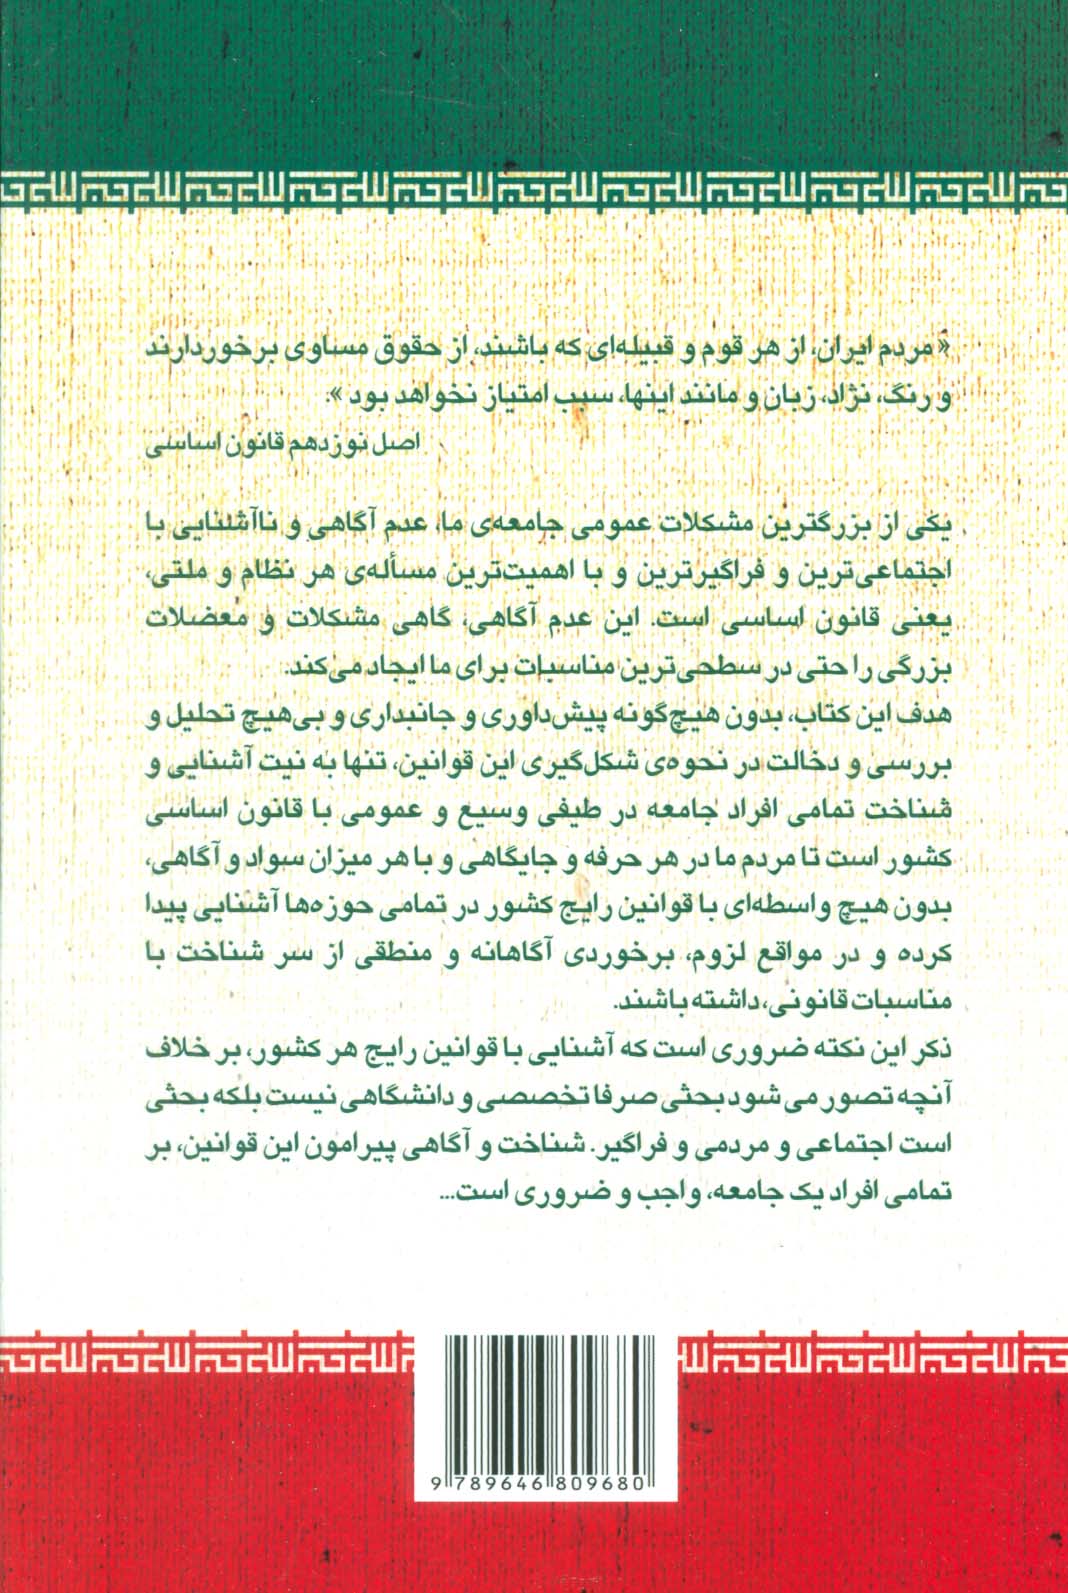 « مردم ایران، از هر قوم و قبیله‌ای که باشند، از حقوق مساوی برخوردارند
و رنگ، نژاد، زبان و مانند اینها، سبب امتیاز نخواهد بود ».
اصل نوزدهم قانون اساسی
یکی از بزرگترین مشکلات عمومی جامعه‌ی ما، عدم آگاهی و ناآشنایی با
اجتماعی‌ترین و فراگیرترین و با اهمیت‌ترین مسأله‌ی هر نظام و ملتی،
یعنی قانون اساسی است. این عدم آگاهی، گاهی مشکلات و معضلات
بزرگی را حتی در سطحی‌ترین مناسبات برای ما ایجاد می‌کند.
هدف این کتاب، بدون هیچ‌گونه پیش‌داوری و جانبداری و بی‌هیچ تحلیل و
بررسی و دخالت در نحوه‌ی شکل‌گیری این قوانین، تنها به نیت آشنایی و
شناخت تمامی افراد جامعه در طیفی وسیع و عمومی با قانون اساسی
کشور است تا مردم ما در هر حرفه و جایگاهی و با هر میزان سواد و آگاهی،
بدون هیچ واسطه‌ای با قوانین رایج کشور در تمامی حوزه‌ها آشنایی پیدا
کرده و در مواقع لزوم، برخوردی آگاهانه و منطقی از سر شناخت با
مناسبات قانونی، داشته باشند.
ذکر این نکته ضروری است که آشنایی با قوانین رایج هر کشور، بر خلاف
آنچه تصور می شود بحثی صرفا تخصصی و دانشگاهی نیست بلکه بحثی
است اجتماعی و مردمی و فراگیر. شناخت و آگاهی پیرامون این قوانین، بر
تمامی افراد یک جامعه، واجب و ضروری است...
9 789646 809680